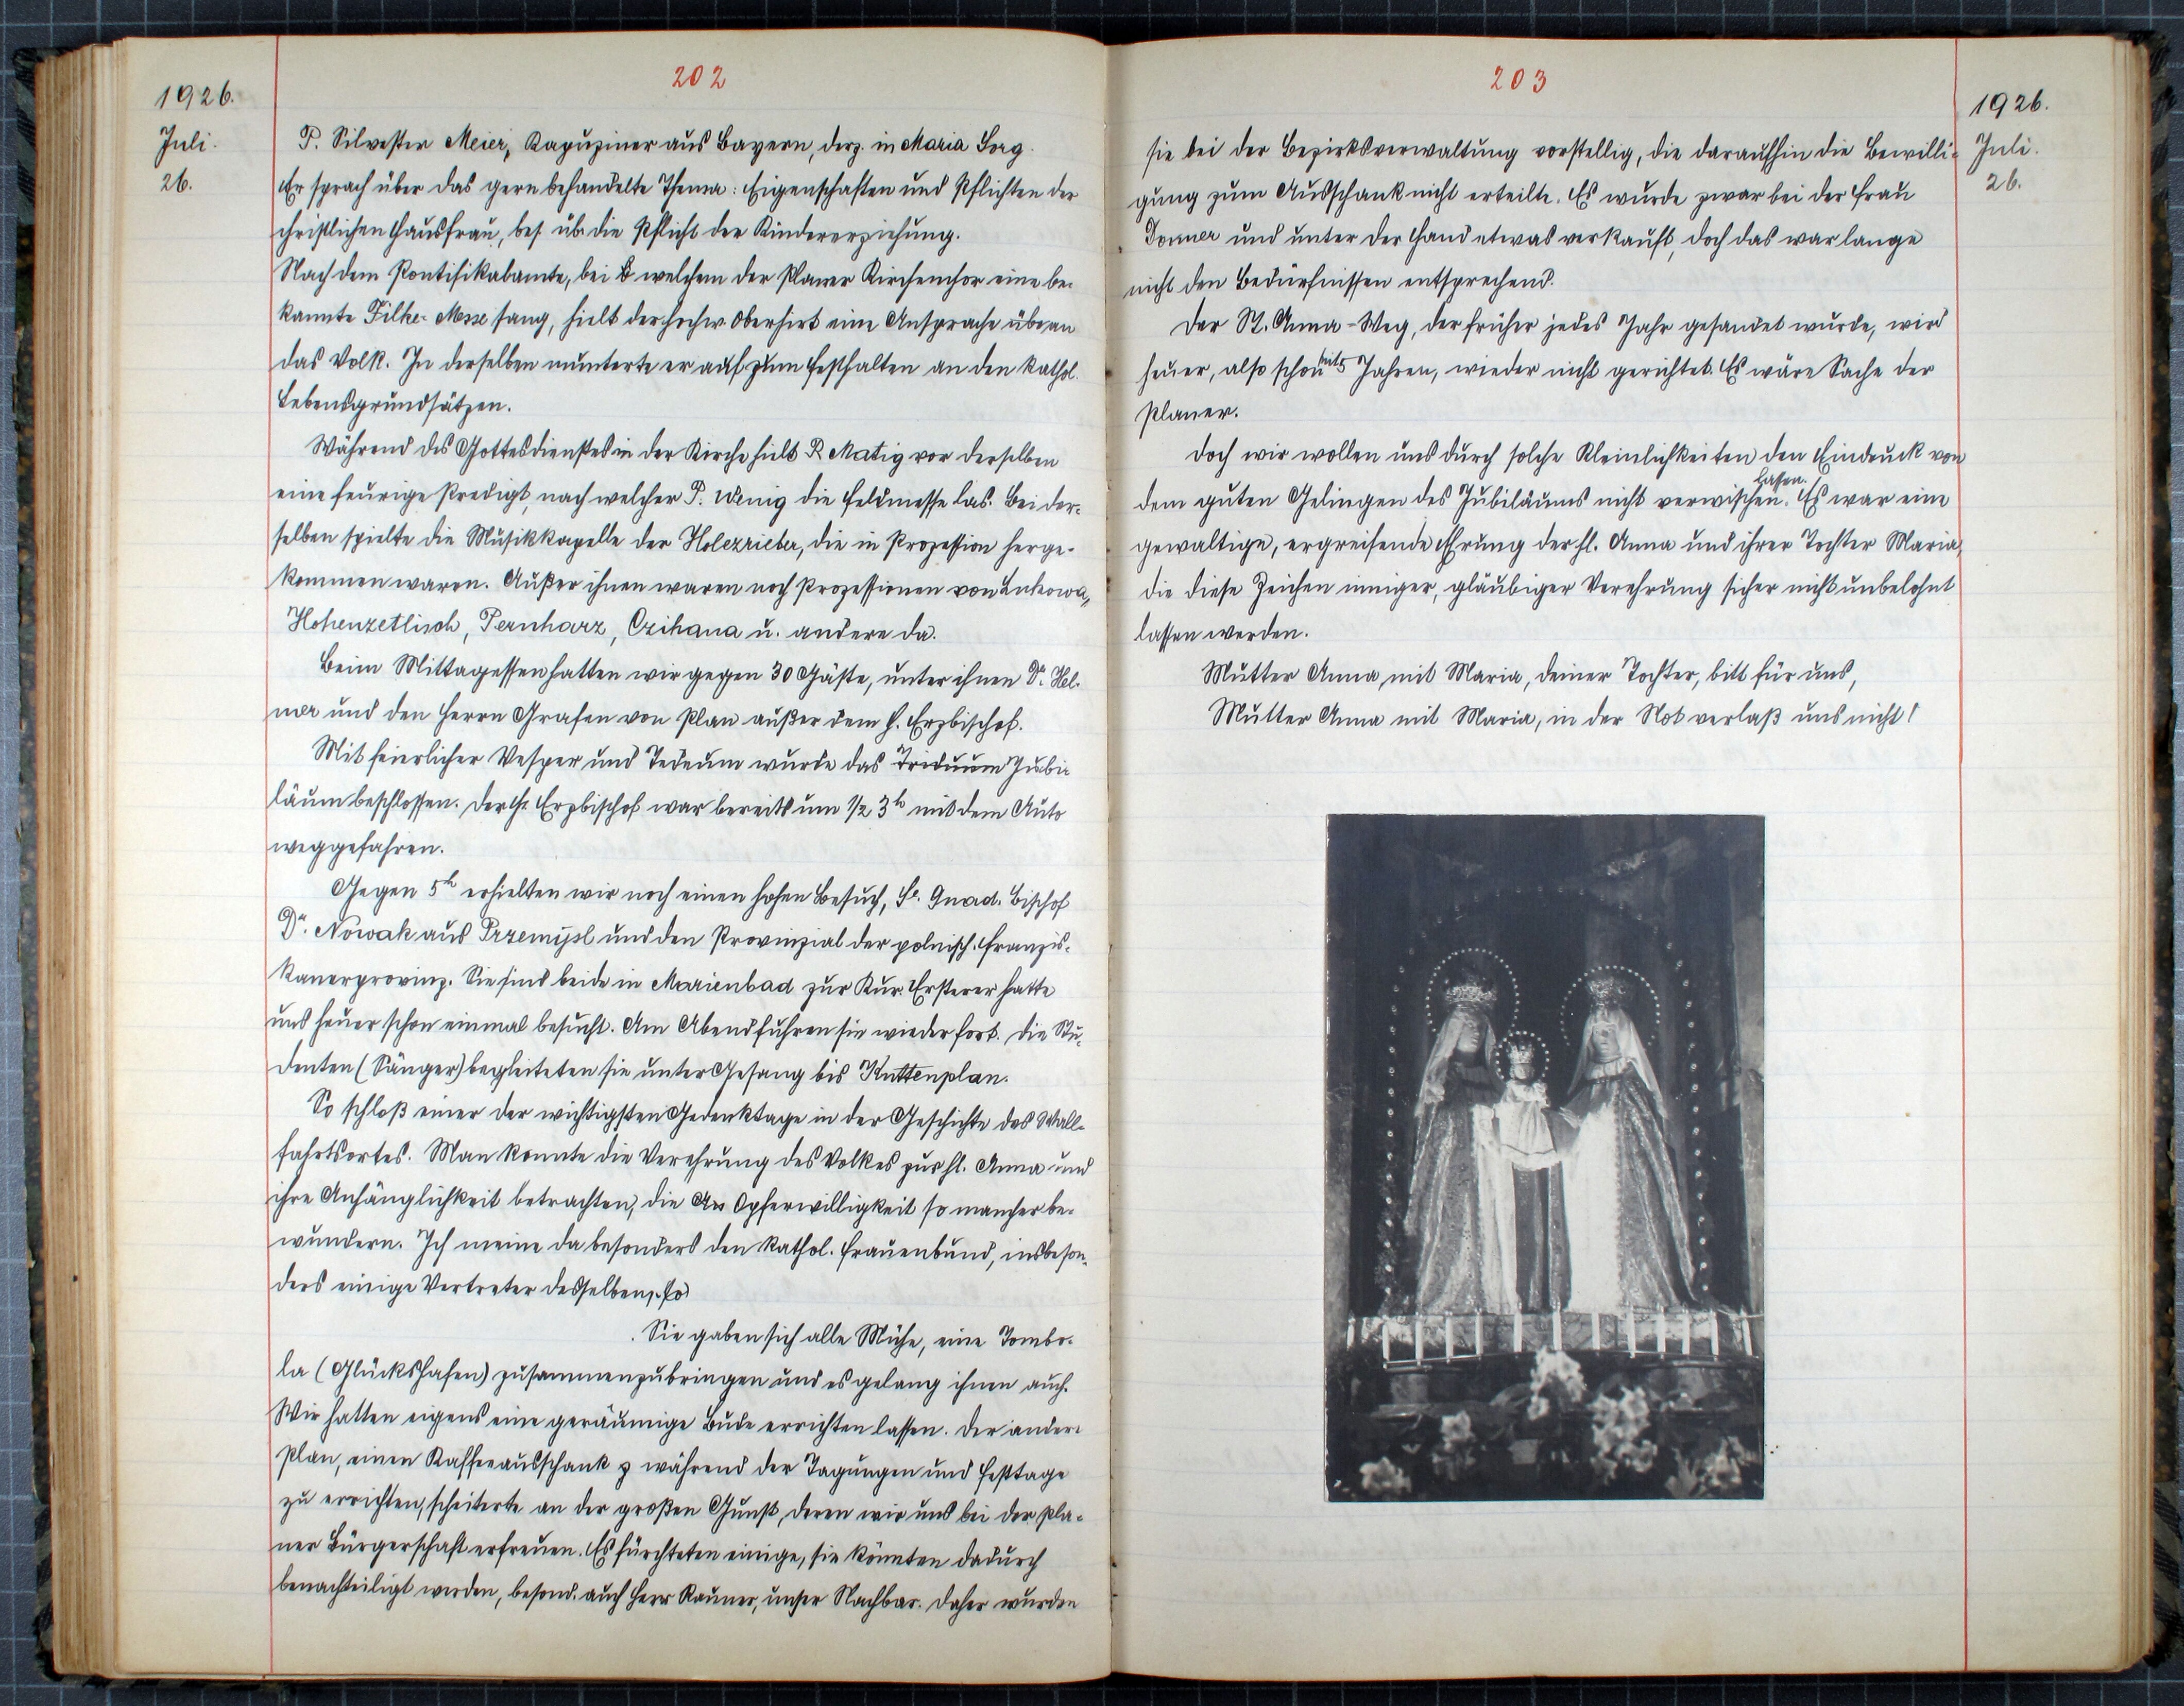 202
1926.
Juli.
26.
P. Silvester Meier, Kapuziner aus Bayern, derz. in Maria Sorg.
Er sprach über das gern behandelte Thema: Eigenschaften und Pflichten der
christlichen Hausfrau, bes. üb. die Pflicht der Kindererziehung.
Nach dem Pontifikalamte, bei welchem der Planer Kirchenchor eine be-
kannte Filke-Messe sang, hielt der hochw. Oberhirt eine Ansprache an
das Volk. In derselben munterte er auf zum Festhalten an den kathol.
Lebensgrundsätzen.
Während des Gottesdienstes in der Kirche hielt P. Matig vor derselben
eine feurige Predigt, nach welcher P. Wenig die Feldmesse las. Bei der-
selben spielte die Musikkapelle der Holezrieber, die in Prozession herge-
kommen waren. Außer ihnen waren noch Prozessionen von Lukowa,
Hohenzetlisch, Pernharz, Czihana u. andere da.
Beim Mittagessen hatten wir gegen 30 Gäste, unter ihnen Dr. Hel-
mer und den Herrn Grafen von Plan außer dem H. Erzbischof.
Mit feierlicher Vesper und Tedeum wurde das Triduum Jubi-
läum beschlossen. Der H. Erzbischof war bereits um 1/2 3h mit dem Auto
weggefahren.
Gegen 5h erhielten wir noch einen hohen Besuch, Se. Gnad. Bischof
Dr. Nowak aus Przemysl und den Provinzial der polnisch. Franzis-
kanerprovinz. Sie sind beide in Marienbad zur Kur. Ersterer hatte
uns heuer schon einmal besucht. Am Abend fuhren sie wieder fort. Die Stu-
denten (Sänger) begleiteten sie unter Gesang bis Kuttenplan.
So schloß einer der wichtigsten Gedenktage in der Geschichte des Wall-
fahrtsortes. Man konnte die Verehrung des Volkes zur hl. Anna und
ihre Anhänglichkeit betrachten, die An Opferwilligkeit so mancher be-
wundern. Ich meine da besonders den kathol. Frauenbund, insbeson-
ders einige Vertreter desselben, so
Sie gaben sich alle Mühe, eine Tombo-
la (Glückshafen) zusammenzubringen und es gelang ihnen auch.
Wir hatten eigens eine geräumige Bude errichten lassen. Der andere
Plan, einen Kaffeeausschank z während der Tagungen und Festtage
zu errichten, scheiterte an der großen Gunst, deren wir uns bei der Pla-
ner Bürgerschaft erfreuen. Es fürchteten einige, sie könnten dadurch
benachteiligt werden, besond. auch Herr Rauner, unser Nachbar. Daher wurden
203
1926.
Juli.
26.
sie bei der Bezirksverwaltung vorstellig, die daraufhin die Bewilli-
gung zum Ausschank nicht erteilte. Es wurde zwar bei der Frau
Donner und unter der Hand etwas verkauft, doch das war lange
nicht den Bedürfnissen entsprechend.
Der St. Anna-Weg, der früher jedes Jahr gesandet wurde, wird
heuer, also schon seit 5 Jahren, wieder nicht gerichtet. Es wäre Sache der
Planer.
Doch wir wollen uns durch solche Kleinlichkeiten den Eindruck von
dem guten Gelingen des Jubiläums nicht verwischen lassen. Es war eine
gewaltige, ergreifende Ehrung der hl. Anna und ihrer Tochter Maria,
die diese Zeichen inniger, gläubiger Verehrung sicher nicht unbelohnt
lassen werden.
Mutter Anna mit Maria, deiner Tochter, bitt für uns,
Mutter Anna mit Maria, in der Not verlaß uns nicht!